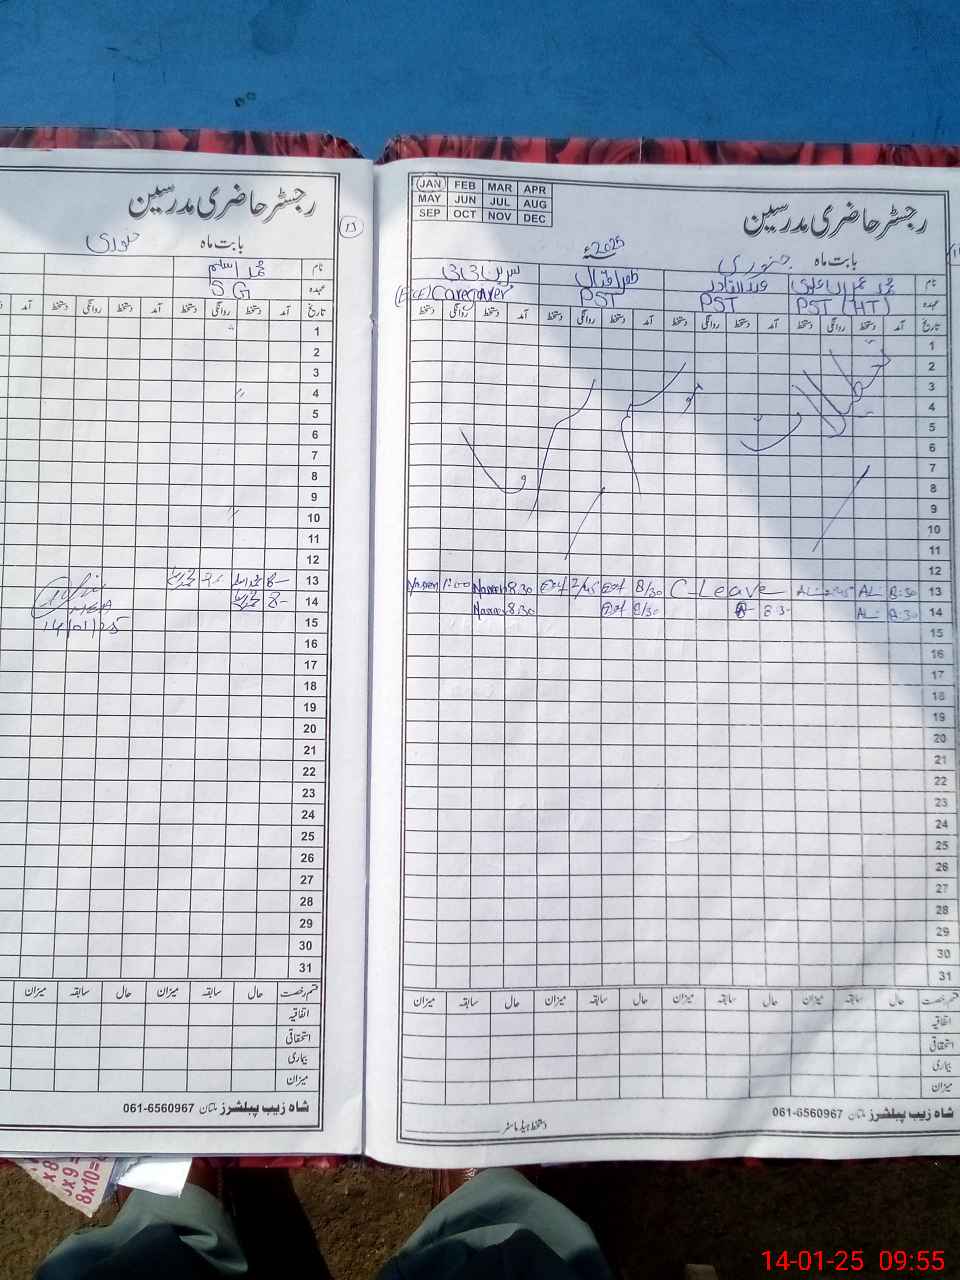 رجسٹر حاضری مدرسین
بابت ماہ جنوری
13
نام محمد اسلم
عہدہ SG
تاریخ آمد دستخط روانگی دستخط آمد دستخط روانگی دستخط
1
2
3
4
5
6
7
8
9
10
11
12
13 8-
14 8-
14/01/25
15
16
17
18
19
20
21
22
23
24
25
26
27
28
29
30
31
قسم رخصت حال سابقہ میزان حال سابقہ میزان
اتفاقیہ
استحقاقی
بیماری
میزان
شاہ زیب پبلشرز ملتان 061-6560967
JAN FEB MAR APR
MAY JUN JUL AUG
SEP OCT NOV DEC
رجسٹر حاضری مدرسین
بابت ماہ جنوری 2025ء
نام
عہدہ PST (HT) PST PST (ECE) Caregiver
تاریخ آمد دستخط روانگی دستخط آمد دستخط روانگی دستخط آمد دستخط روانگی دستخط آمد دستخط روانگی دستخط
1
2
3
4
5
6
7
8
9
10
11
12
Nasreen 1:00 Nasreen 8:30 2/45 8/30 C-Leave AL- 2:45 AL- 8:30 13
Nasreen 8:30 8/30 8:3- AL- 8:30 14
15
16
17
18
19
20
21
22
23
24
25
26
27
28
29
30
31
قسم رخصت حال سابقہ میزان حال سابقہ میزان حال سابقہ میزان حال سابقہ میزان
اتفاقیہ
استحقاقی
بیماری
میزان
شاہ زیب پبلشرز ملتان 061-6560967
دستخط ہیڈ ماسٹر
8x10=
14-01-25 09:55